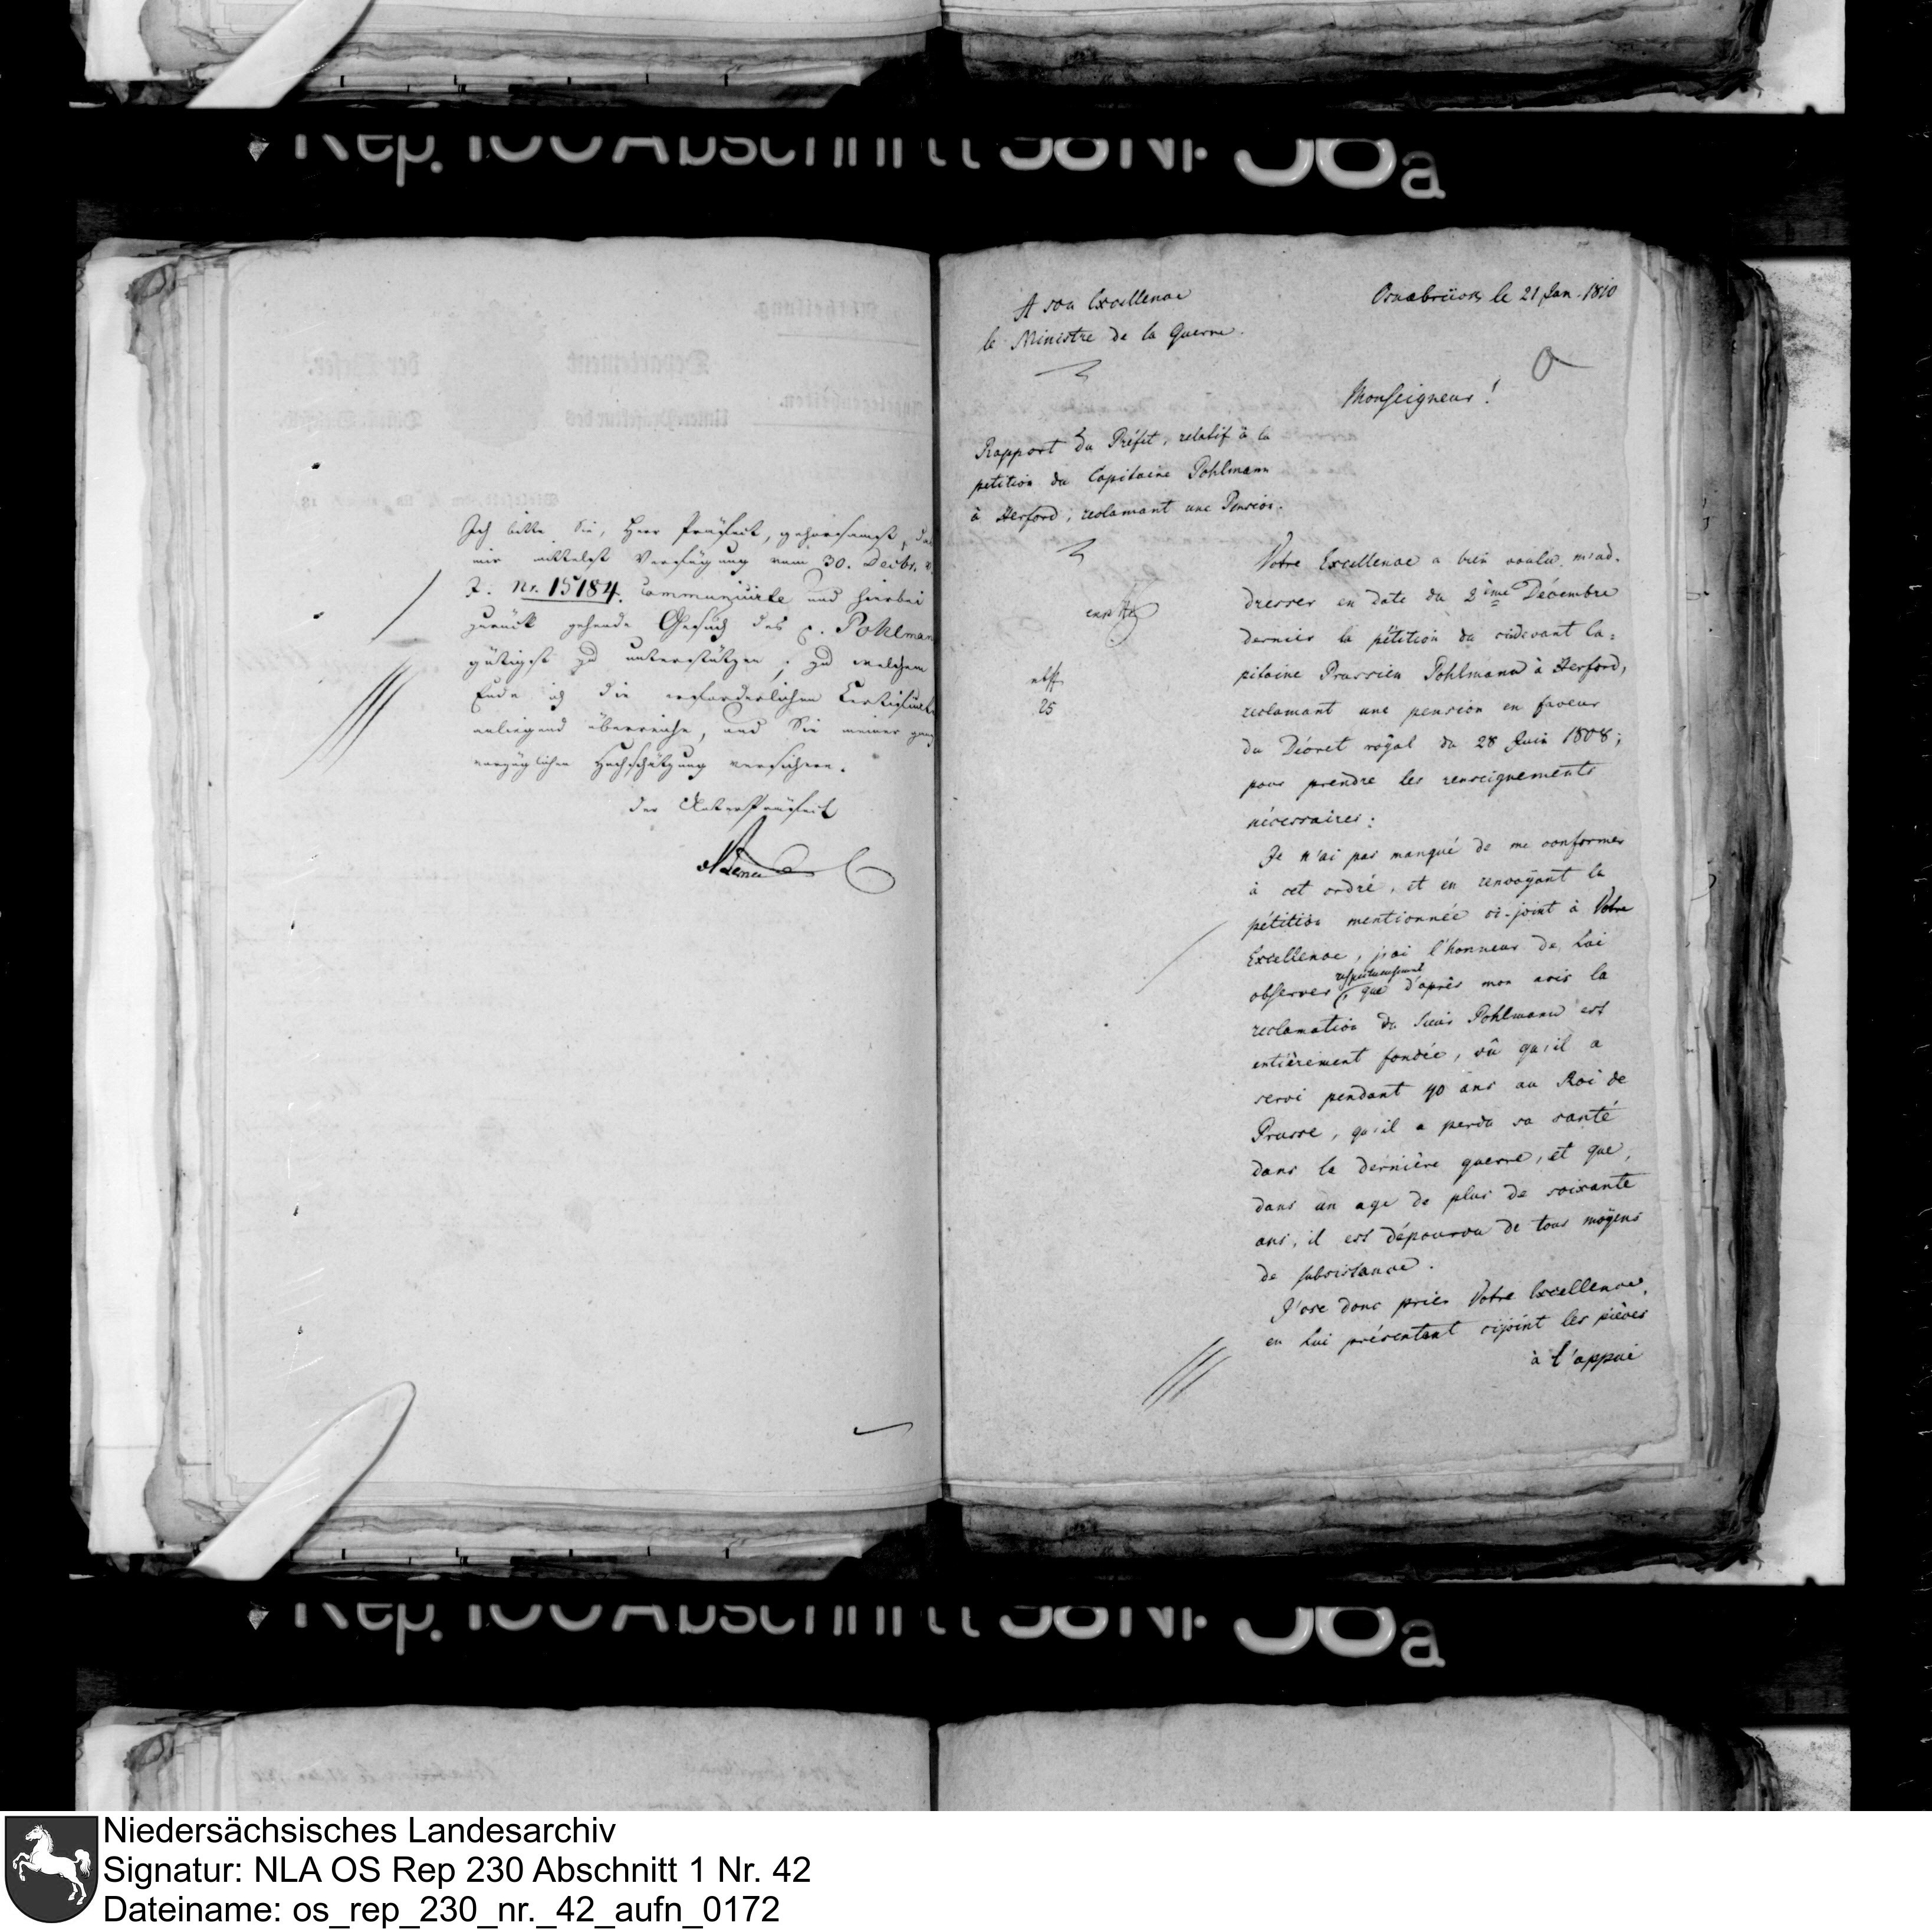 Rep. 100 Abschnitt 58 Nr. 38a
Ich bitte Sie, Herr Präfect, gehorsamst, das
mir mittelst Verfügung vom 30. Decbr. v.
J. Nr. 15184. communicirte und hierbei
zurück gehende Gesuch des p. Pohlmann
gütigst zu unterstützen; zu welchem
Ende ich die erforderlichen Certificate
anliegend überreiche, und Sie meiner ganz
vorzüglichen Hochschätzung versichere.
der UnterPräfect
A son Excellence
le Ministre de la Guerre.
Osnabrück le 21 Jan. 1810
Monseigneur!
Rapport du Préfet, relatif à la
petition du Capitaine Pohlmann
à Herford, reclamant une Pension.
25
Votre Excellence a bien voulu m'ad-
dresser en date du 2ème Décembre
dernier la pétition du cidevant Ca-
pitaine Prussien Pohlmann à Herford,
reclamant une pension en faveur
du Décret royal du 28 Juin 1808;
pour prendre les renseignements
nécessaires:
Je n'ai pas manqué de me conformer
à cet ordre, et en renvoyant la
pétition mentionnée ci-joint à Votre
Excellence, j'ai l'honneur de Lui
observer respectueusement, que d'après mon avis la
reclamation du Sieur Pohlmann est
entièrement fondée, vû qu'il a
servi pendant 40 ans au Roi de
Prusse, qu'il a perdu sa santé
dans la dernière guerre, et que,
dans un age de plus de soixante
ans, il est dépourvu de tous moÿens
de subsistance.
J'ose donc prier Votre Excellence,
en Lui présentant cijoint les pièces
à l'appui
Rep. 100 Abschnitt 58 Nr. 38a
Niedersächsisches Landesarchiv
Signatur: NLA OS Rep 230 Abschnitt 1 Nr. 42
Dateiname: os_rep_230_nr._42_aufn_0172